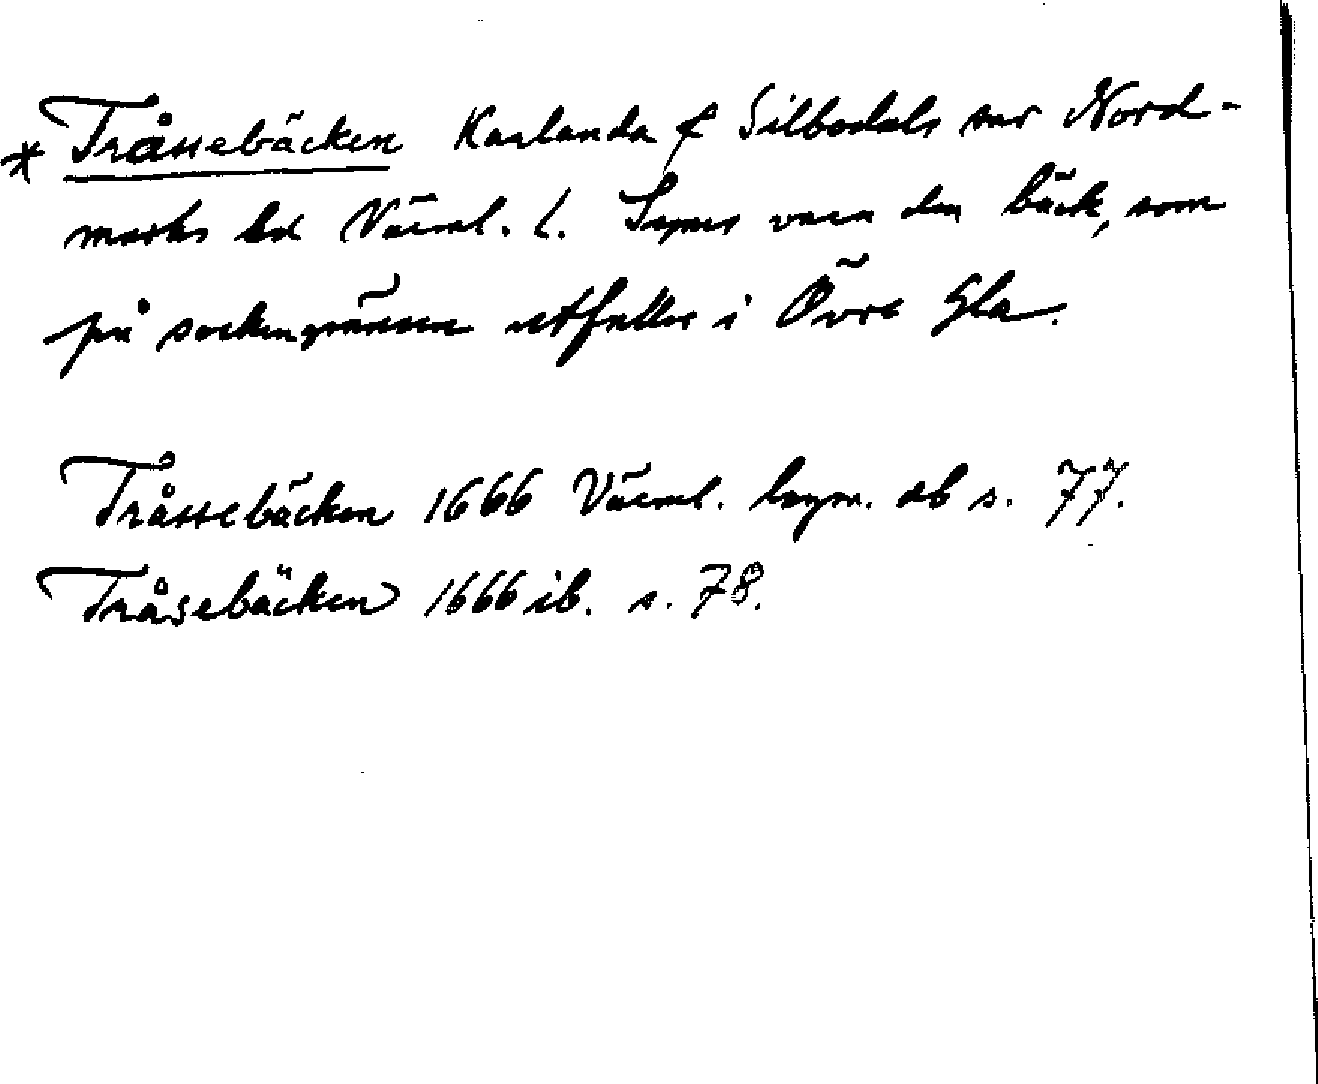 * Tråssebäcken Karlanda & Silbodals snr Nord-
marks hd Värml. l. Synes vara den bäck, som
på sockengränsen utfaller i Övre Gla.
Tråssebäcken 1666 Värml. lagm. db s. 77.
Tråsebäcken 1666 ib. s. 78.